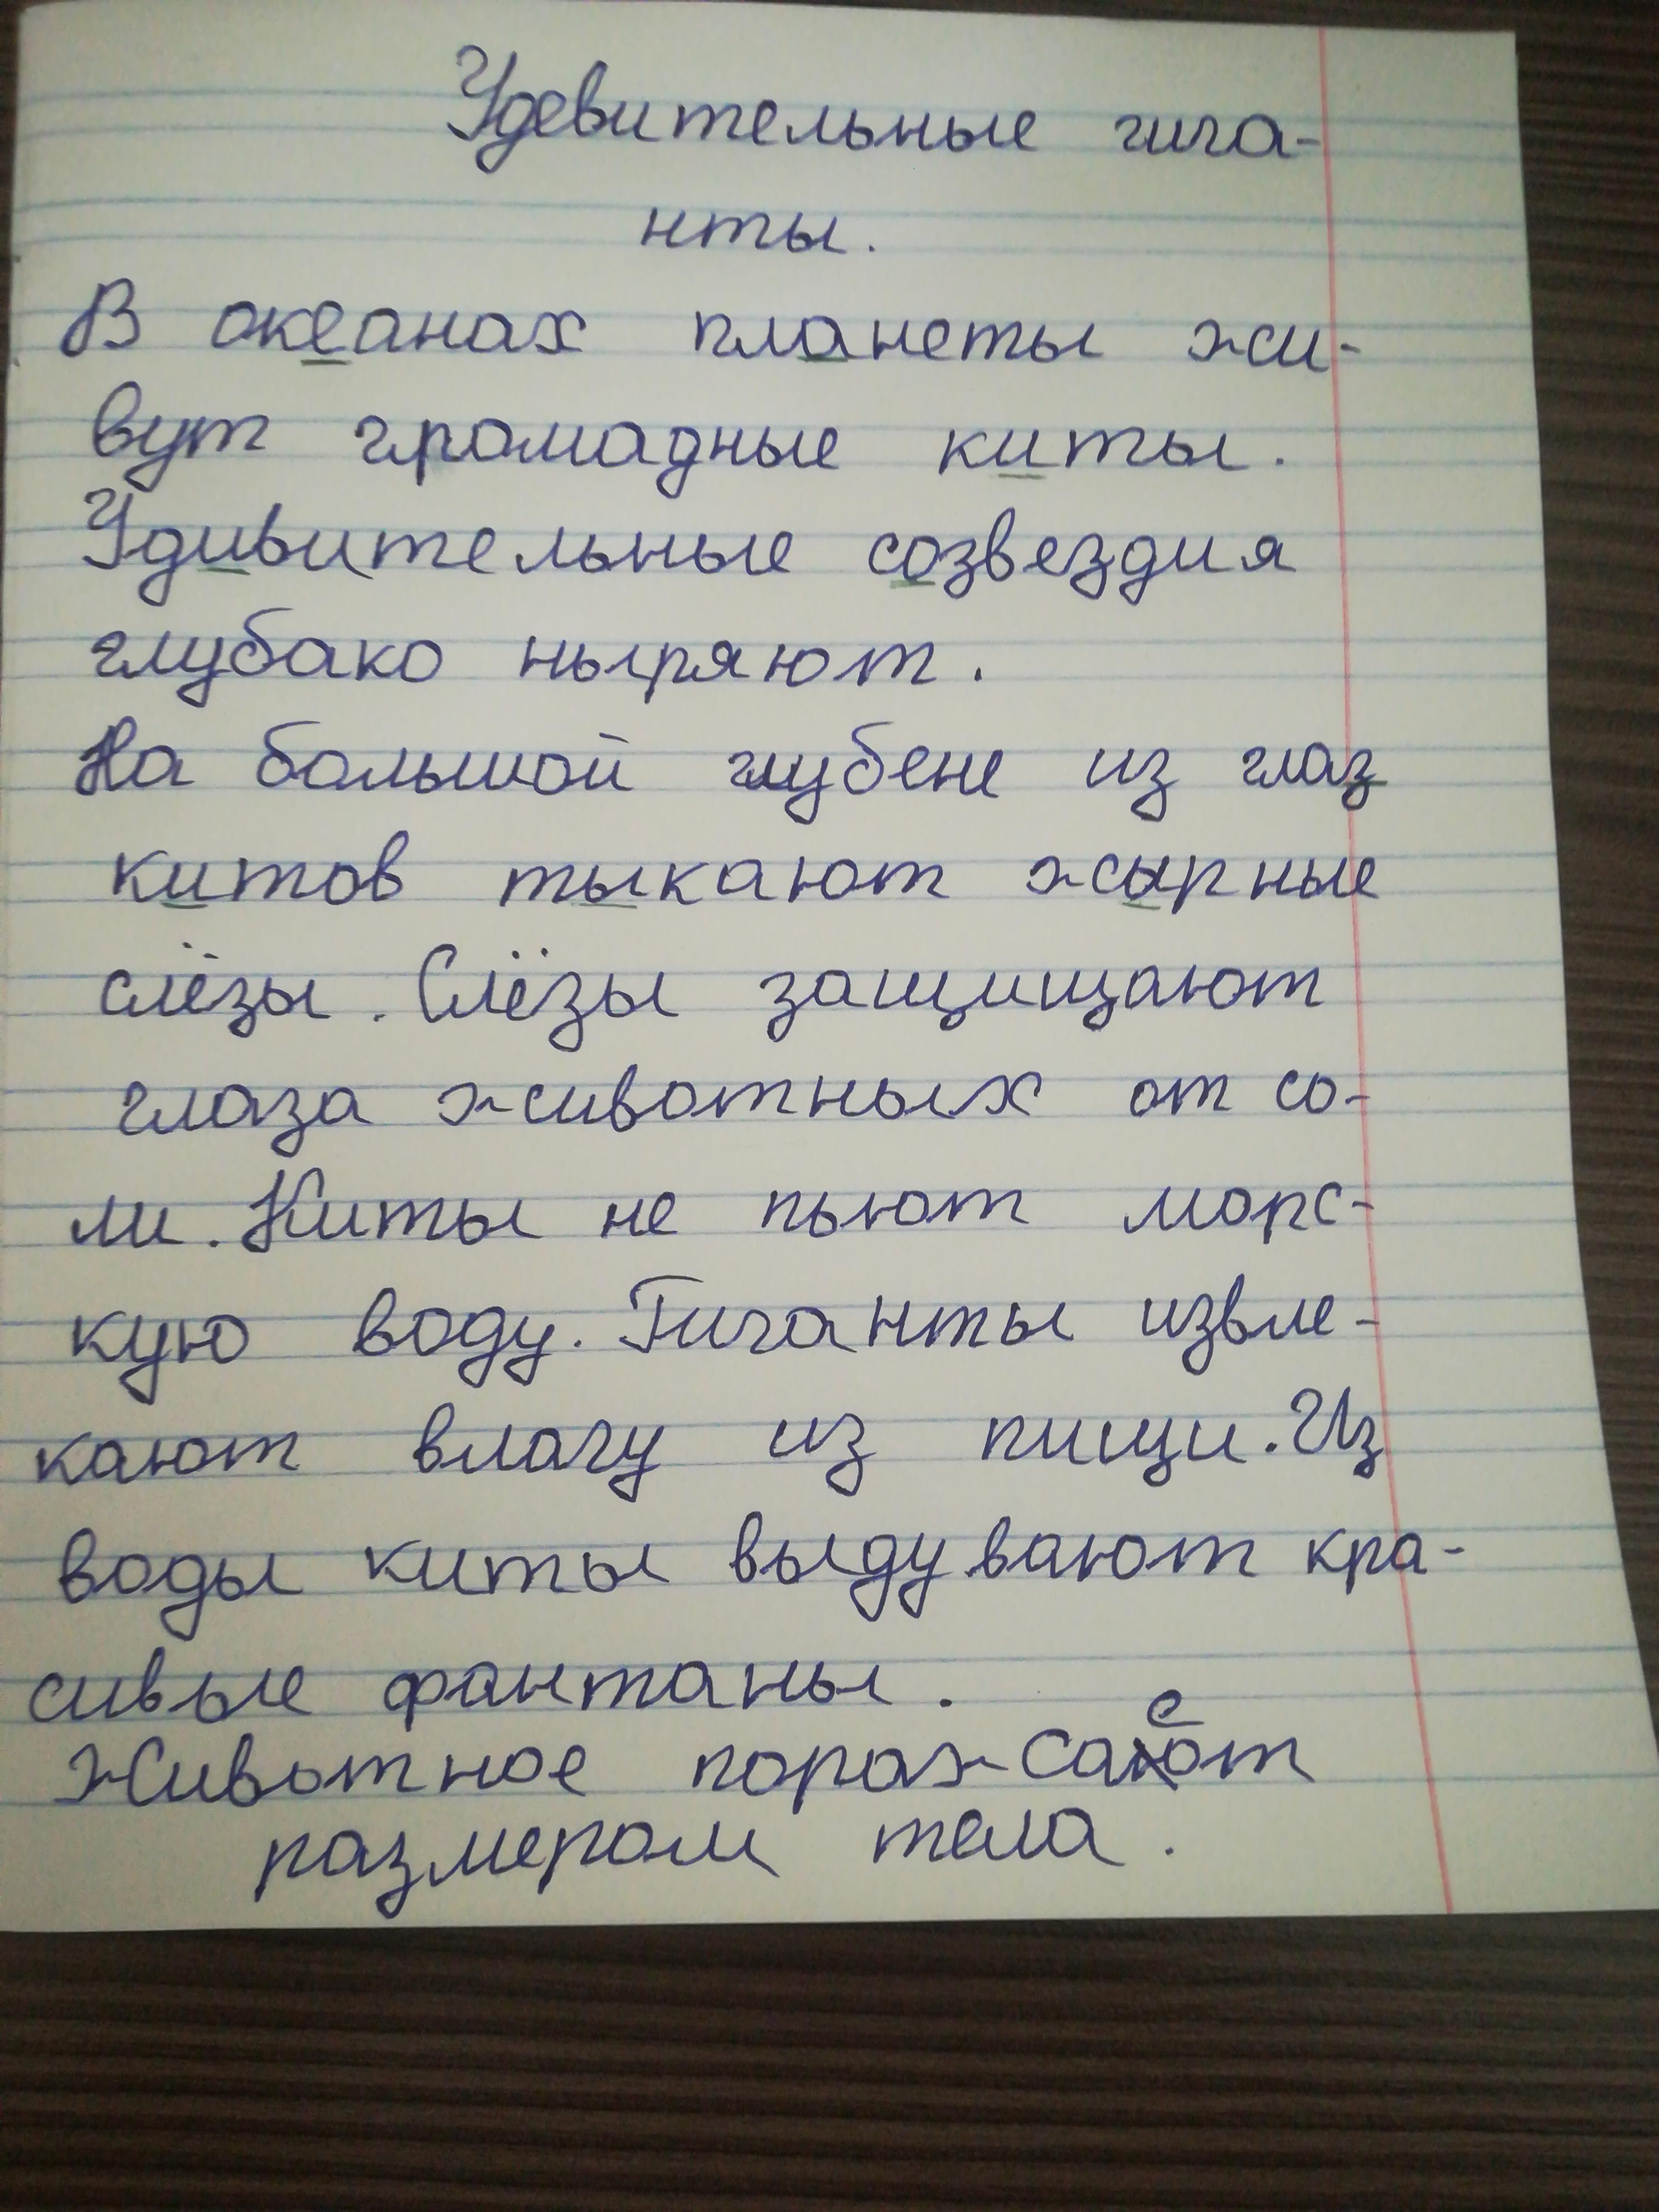 Удевительные гига-
нты.
В океанах планеты жи-
вут громадные киты.
Удивительные созвездия
глубако ныряют.
На большой глубене из глаз
китов тыкают жырные
слёзы. Слёзы защищают
глаза животных от со-
ли. Киты не пьют морс-
кую воду. Гиганты извле-
кают влагу из пищи. Из
воды киты выдувают кра-
сивые фантаны.
Животное поражает
размером тела.